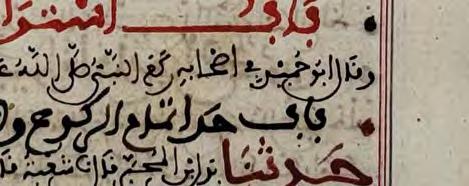 باب استوا
وقال ابو حميد في اصحابه ركع النبي صلى الله ع
باب حد اتمام الركوع و
حدثنا بدل ابن المحبر قال نا شعبة قا